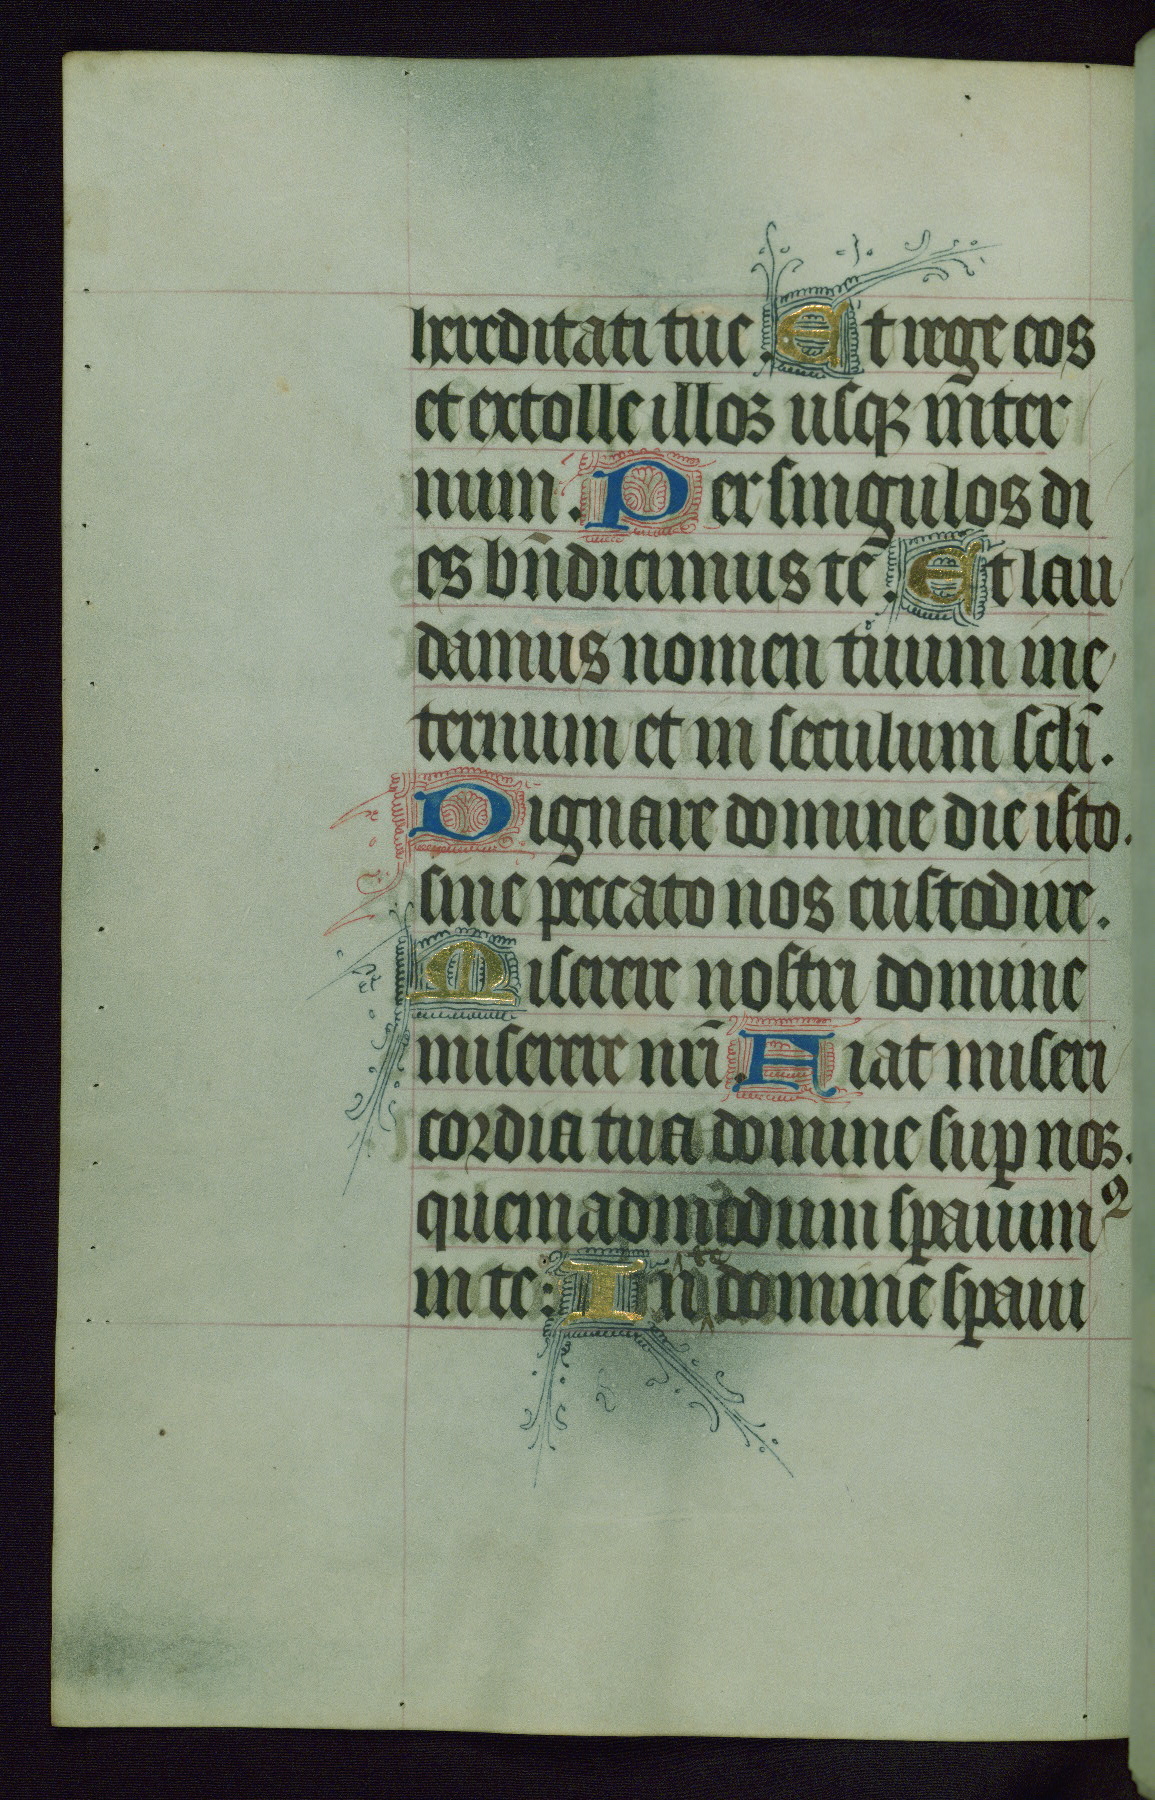 hereditati tue. Et rege eos
et extolle illos usqꝫ in eter
num. Per singulos di
es bn̄dicimus te. Et lau
damus nomen tuum in e
ternum et in seculum scl̄i.
Dignare domine die isto.
sine peccato nos custodire.
Miserere nostri domine
miserere nr̄i. Fiat miseri
cordia tua domine suꝑ nos.
quemadmodum sꝑauimꝰ
in te: In te domine sꝑaui